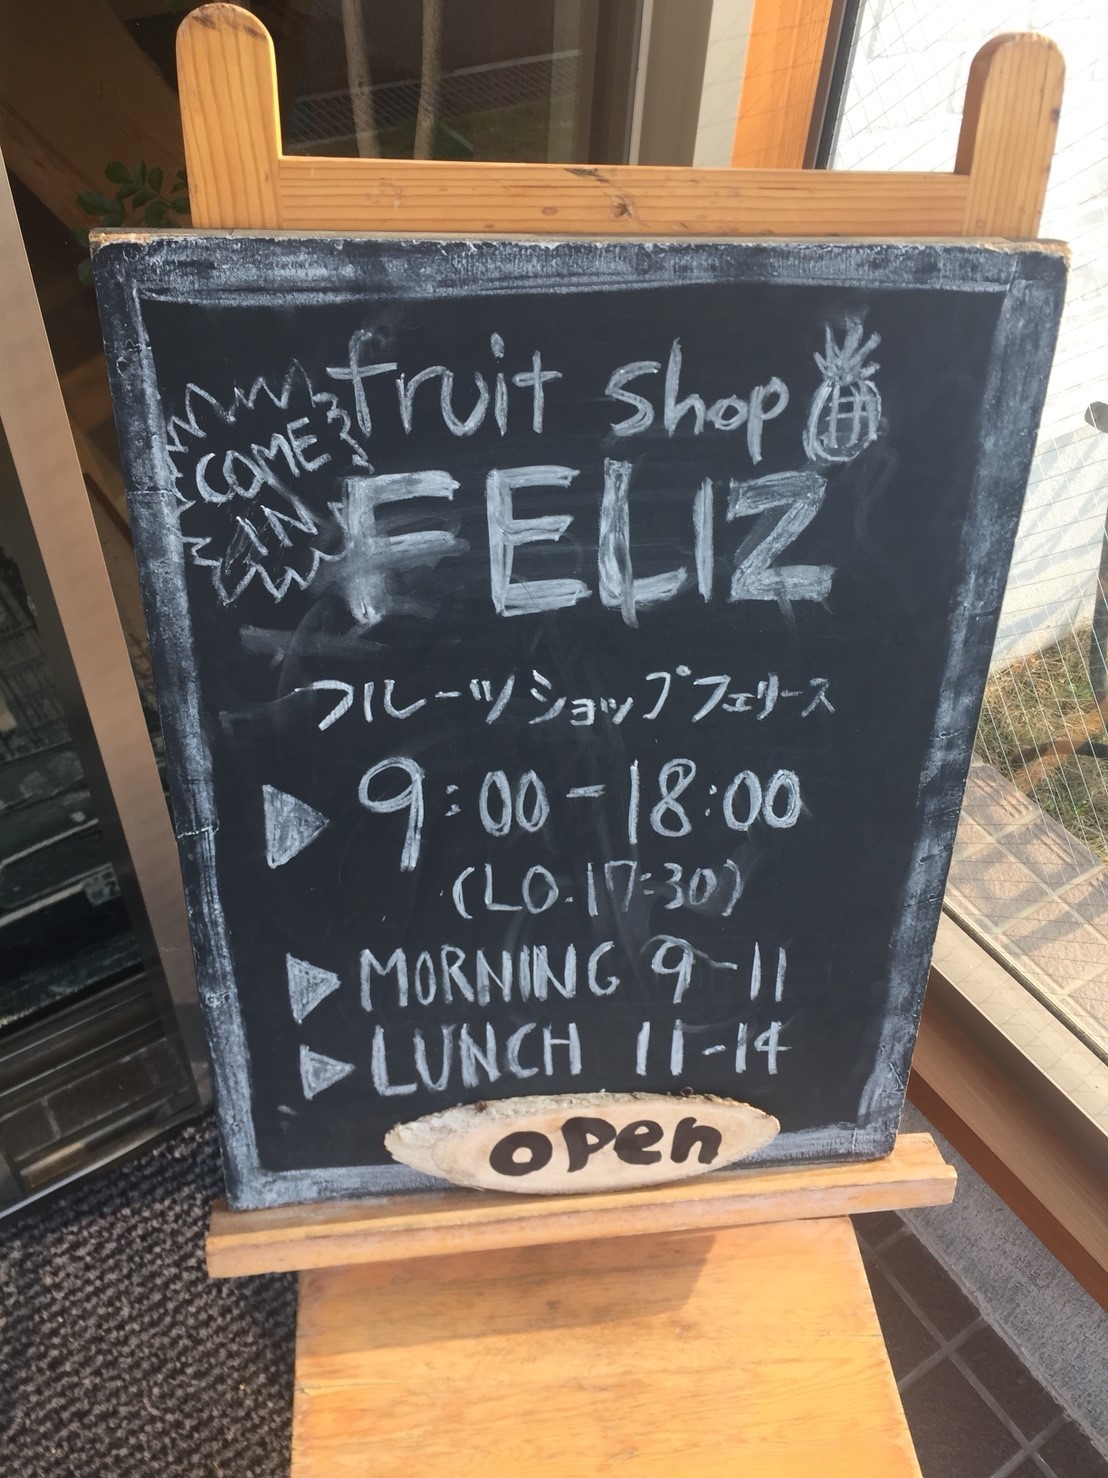 fruit shop
COME
IN
FELIZ
フルーツショップフェリース
9:00-18:00
(LO.17:30)
MORNING 9-11
LUNCH 11-14
open